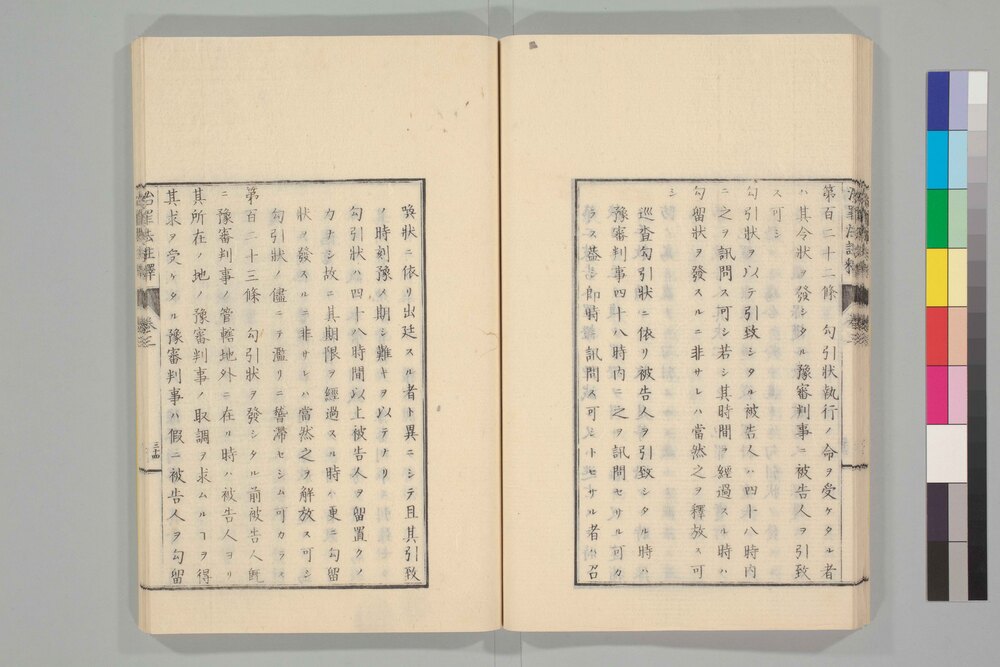 第百二十二條　勾引狀執行ノ命ヲ受ケタル者
ハ其令狀ヲ發シタル豫審判事ニ被告人ヲ引致
ス可シ
勾引狀ヲ以テ引致シタル被告人ハ四十八時内
ニ之ヲ訊問ス可シ若シ其時間ヲ經過スル時ハ
勾留狀ヲ發スルニ非サレハ當然之ヲ釋放ス可
シ
巡査勾引狀ニ依リ被告人ヲ引致シタル時ハ
豫審判事四十八時内ニ之ヲ訊問セサル可カ
ラス蓋シ即時訊問ス可シトセサル者ハ召
喚狀ニ依リ出廷スル者ト異ニシテ且其引致
ノ時刻豫メ期シ難キヲ以テナリ
勾引狀ハ四十八時間以上被告人ヲ留置クノ
力ナシ故ニ其期限ヲ經過スル時ハ更ニ勾留
狀ヲ發スルニ非サレハ當然之ヲ解放ス可シ
勾引狀ノ儘ニテ濫リニ滯セシム可カラス
第百二十三條　勾引狀ヲ發シタル前被告人既
ニ豫審判事ノ管轄地外ニ在ル時ハ被告人ヨリ
其所在ノ地ノ豫審判事ノ取調ヲ求ムルヿヲ得
其求ヲ受ケタル豫審判事ハ假ニ被告人ヲ勾留
治罪法註釋　卷二
三十四